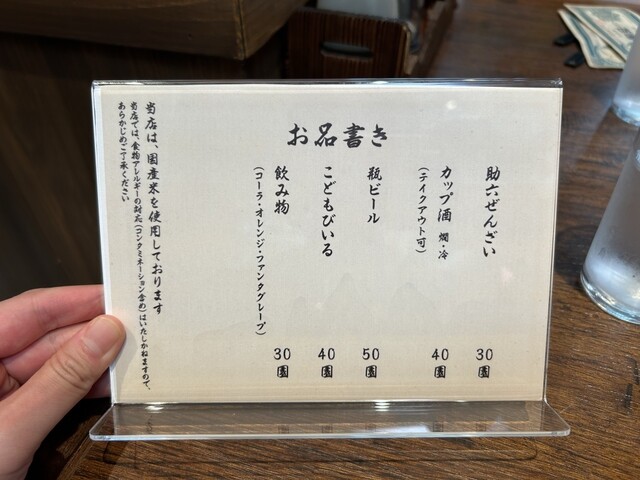 お品書き
助六ぜんざい 30園
カップ酒 燗・冷 40園
(テイクアウト可)
瓶ビール 50園
こどもびいる 40園
飲み物 30園
(コーラ・オレンジ・ファンタグレープ)
当店は、国産米を使用しております
当店では、食物アレルギーの対応(コンタミネーション含め)はいたしかねますので、
あらかじめご了承ください